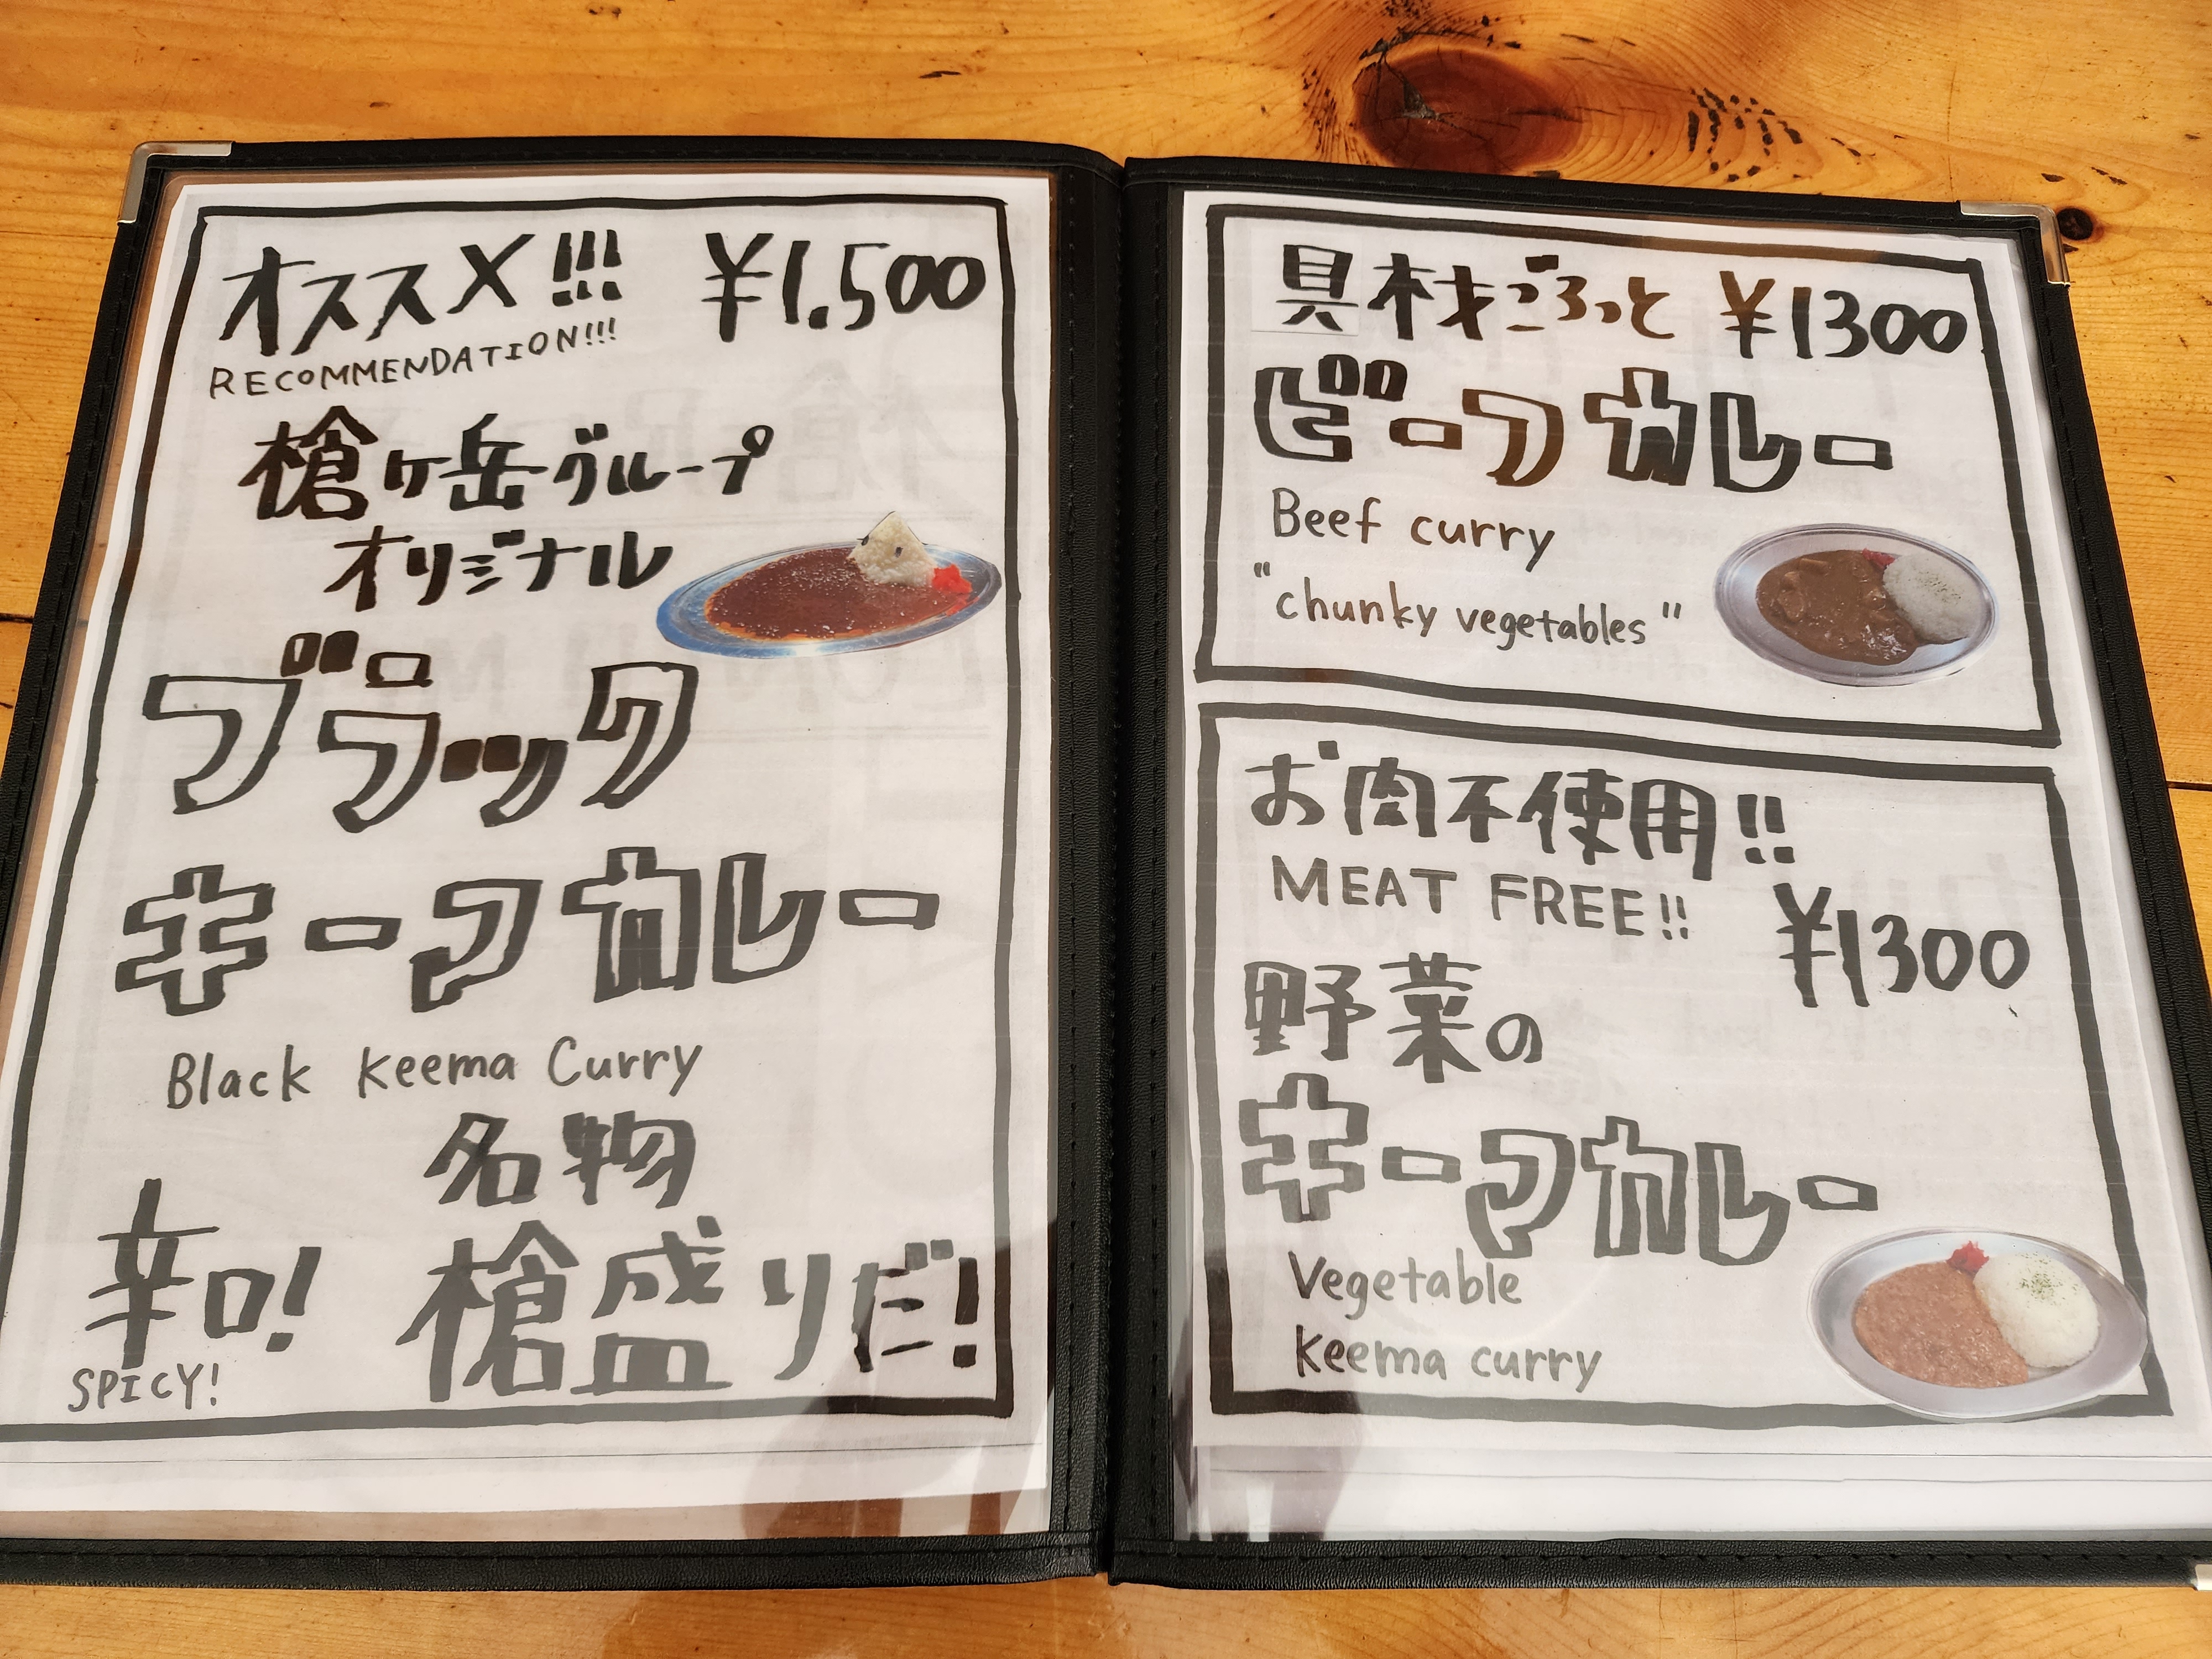 オススメ!!! ¥1.500
RECOMMENDATION!!!
槍ヶ岳グループ
オリジナル
ブラック
キーマカレー
Black Keema Curry
名物
辛口! 槍盛りだ!
SPICY!
具材ごろっと ¥1300
ビーフカレー
Beef curry
"chunky vegetables"
お肉不使用!!
MEAT FREE!!
¥1300
野菜の
キーマカレー
Vegetable
Keema curry